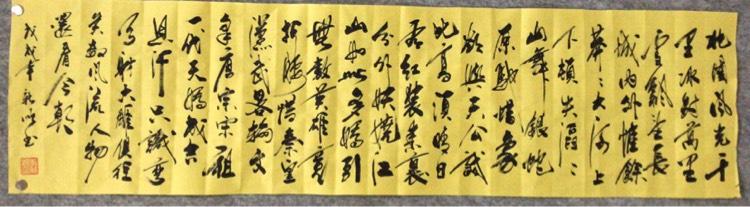 北國風光千
里冰封萬里
雪飄望長
城内外惟餘
莽〻大河上
下頓失滔〻
山舞銀蛇
原馳蠟象
欲與天公試
比高須晴日
看紅裝素裹
分外妖嬈江
山如此多嬌引
無數英雄竞
折腰惜秦皇
漢武畧輸文
采唐宗宋祖
一代天驕成吉
思汗只識彎
弓射大雕俱往
矣數風流人物
還看今朝
戊戌年書